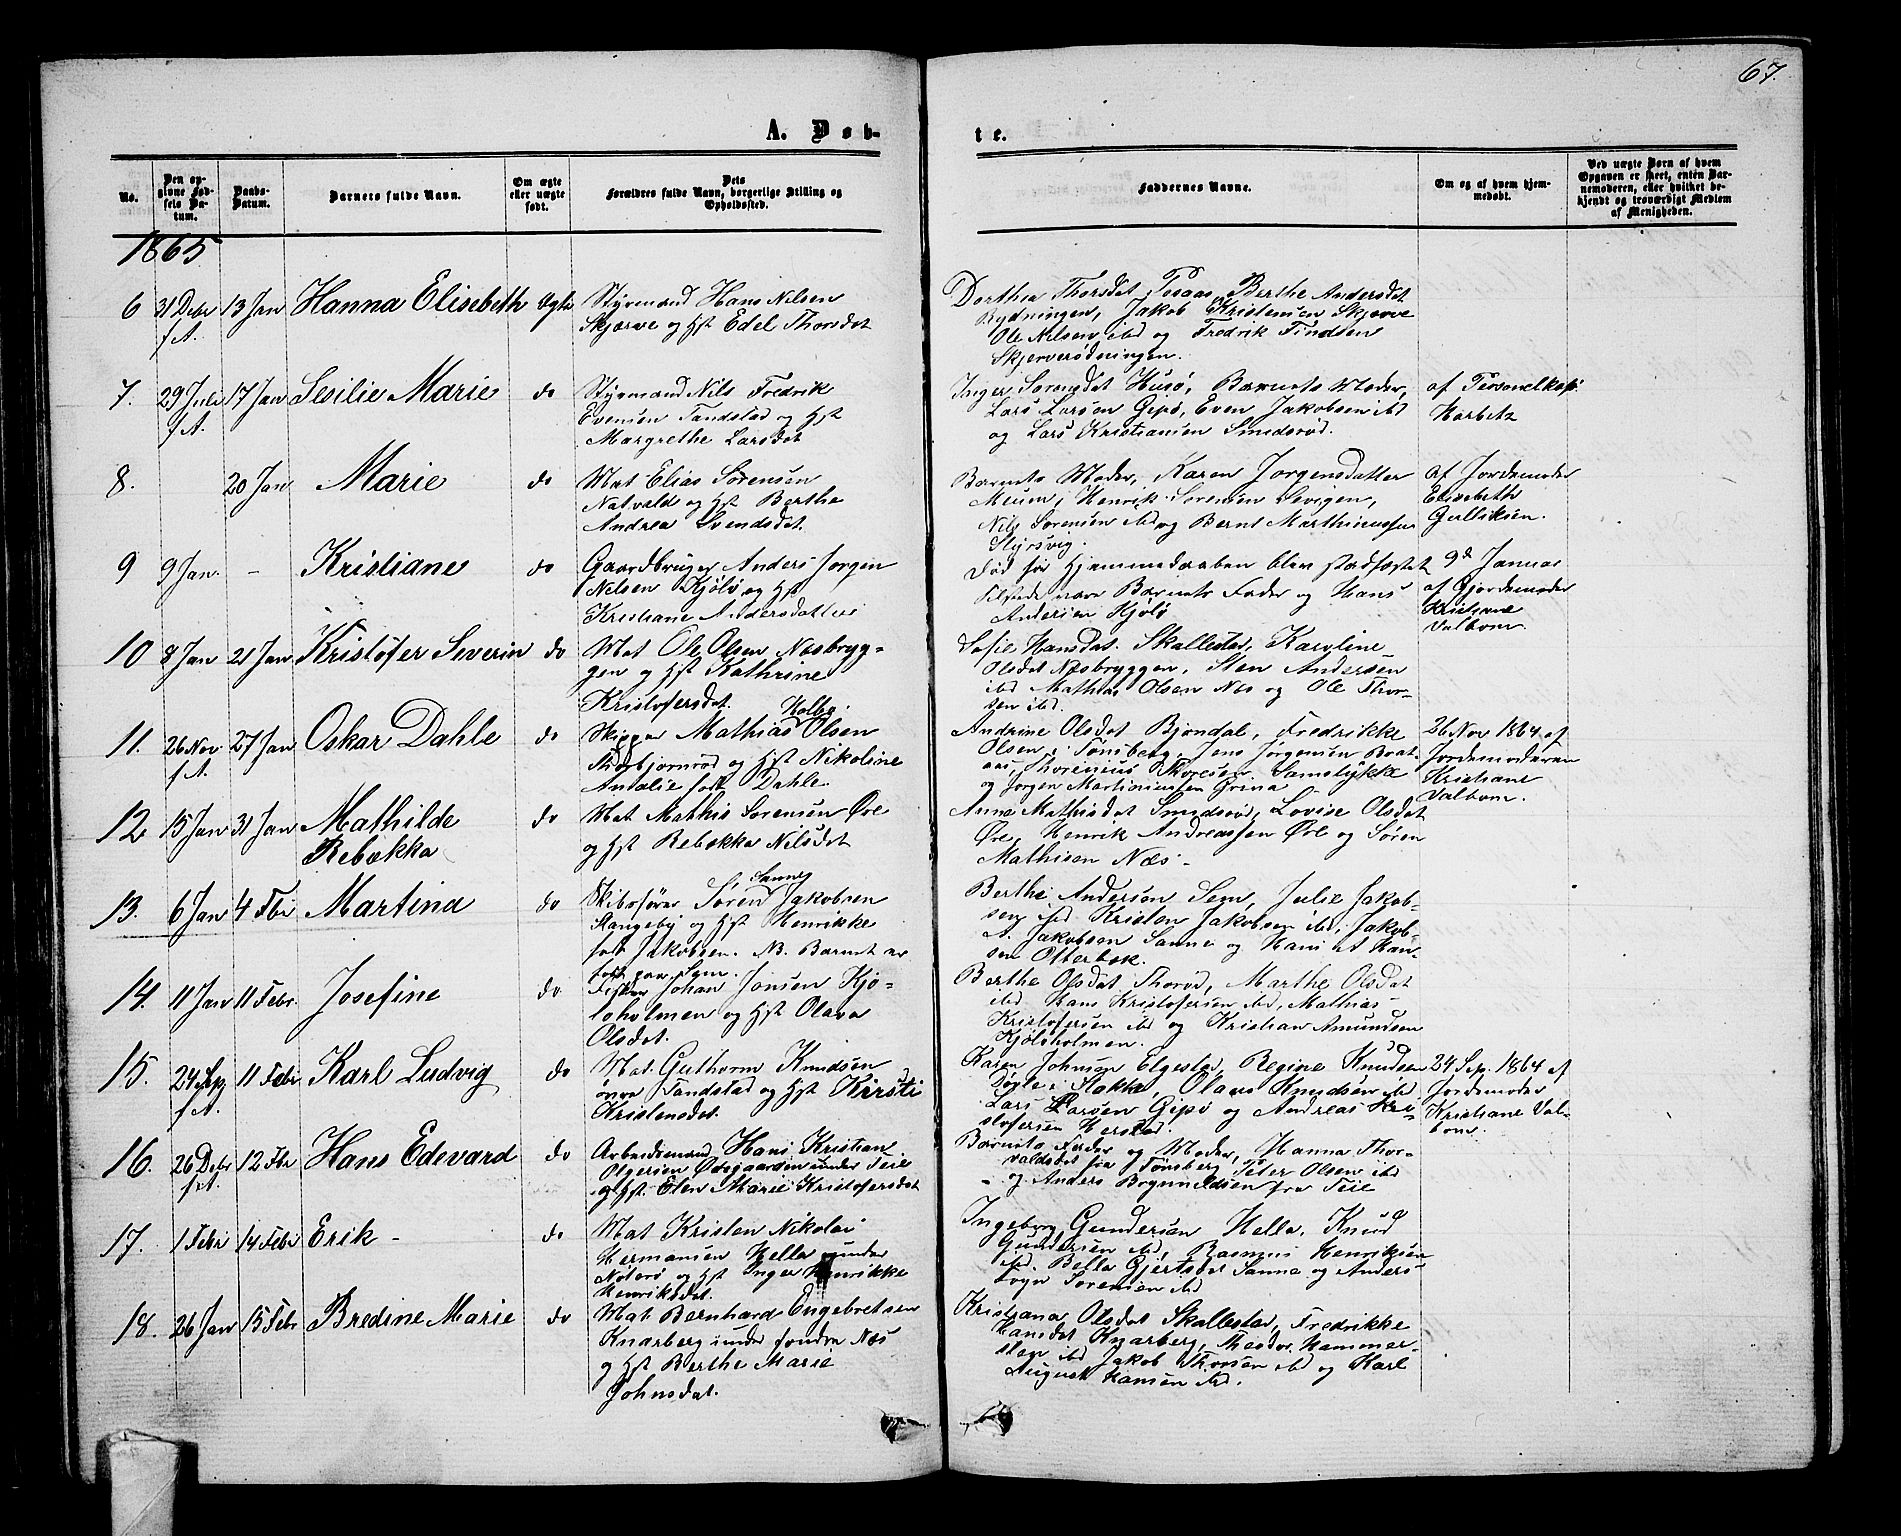 67.
A. Døb-
te.
No.
Den opgivne Fødsels Datum.
Daabs-Datum.
Barnets fulde Navn.
Om ægte eller uægte født.
Dets Forældres fulde Navn, borgerlige Stilling og Opholdssted.
Faddernes Navne.
Om og af hvem hjemmedøbt.
Ved uægte Børn af hvem Opgaven er skeet, enten Barnemoderen, eller hvilket bekjendt og troværdigt Medlem af Menigheden.
1865
6 31 Debr f.A. 13 Jan Hanna Elisebeth Ægte
Styrmand Hans Nilsen
Skjærve og Hst Edel Thorsdat
Dorthea Thorsdat, Berthe Andersdat
Rydningen, Jakob Kristensen Skjærve
Ole Nilsen ibd og Fredrik Findsen
Skjerverødningen.
7. 29 f.A. 17 Jan Sesilie Marie do
Styrmand Nils Fredrik
Evensen Tandstad og Hst
Margrethe Larsdat
Inger Sørensdat Husø, Barnets Moder,
Lars Larsen Gipø, Even Jakobsen ibd
og Lars Kristiansen Smidsrød.
af Personelkap.
Harbitz
8. 20 Jan Marie do
Mat Elias Sørensen
Natvalds og Hst Berthe
Andrea Svendsdat.
Barnets Moder, Karen Jørgensdatter
Meum, Henrik Sørensen
Nils Sørensen ibd og Bernt Marthinussen
Styrsvig.
af Jordemoder
Elisebeth
Gulliksen.
9 9 Jan. - Kristiane do
Gaardbruger Anders Jørgen
Nilsen Kjølø og Hst
Kristiane Andersdatter
Død før Hjemmedaaben blev stadfæstet
Tilstede vare Barnets Fader og Hans
Andersen Kjølø
9d Januar
af Gjordemoder
Kristiane
Valbom.
10 8 Jan 21 Jan Kristofer Severin do
Mat Ole Olsen Næsbryg-
gen og Hst Kathrine
Kristofersdat.
Sofie Hansdat. Skallestad, Karoline
Olsdat Næsbryggen, Sten Andersen
ibd Mathias Olsen Næs og Ole Thor-
sen ibd.
11. 26 Nov. f.A. 27 Jan Oskar Dahle do
Holbg.
Skipper Mathias Olsen
Thorbjørnrød og Hst Nikoline
Antalie født Dahle.
Andrine Olsdat Bjøndal, Fredrikke
Olsen i Tønsberg, Jens Jørgensen Brat-
aas, Thorinius Thoresen Samstykke
og Jørgen Martiniussen Grina
26 Nov 1864 af
Jordemoderen
Kristiane
Valbom.
12. 15 Jan 31 Jan Mathilde
Rebekka do
Mat Mathis Sørensen Øre
og Hst Rebekka Nilsdat
Anne Mathisdat Smidsrød, Lovise Olsdat
Øre, Henrik Andreassen Øre og Søren
Mathisen Næs.
13. 6 Jan 4 Fbr Martina do
Sanne
Skibsfører Søren Jakobsen
Stangeby og Hst Henrikke
født Jakobsen. NB. Barnet er
født paa Sem.
Berthe Andersen Sem, Julie Jakob-
sen ibd Kristen Jakobsen ibd, Jakob
A. Jakobsen Sanne og Hans A Han-
sen Otterbæk.
14. 11 Jan 11 Febr. Josefine do
Fisker Johan Jonsen Kjø-
løholmen og Hst Olava
Olsdat.
Berthe Olsdat Thorød, Marthe Olsdat
ibd Hans Kristofersen ibd, Mathias
Kristofersen ibd og Kristian Amundsen
Kjøløholmen.
15. 24 Sep f.A. 11 Febr Karl Ludvig do
Mat. Guthorm Knudsen
øvre Tandstad og Hst Kirsti
Kristensdat.
Karen Johnsen Elgestad, Regine Knudsen
Døgle i Stokke, Olaus Knudsen ibd
Lars Larsen Gipø og Andreas Kri-
stofersen Herstad.
24 Sep. 1864 af
Jordemoder
Kristiane Val-
bom.
16. 26 Debr f.A. 12 Fbr Hans Edevard do
Arbeidsmand Hans Kristian
Olgersen Ødegaarden under Teie
og Hst. Elen Marie Kristofersdat
Barnets Fader og Moder, Hanna Thor-
valdsdat fra Tønsberg Peter Olsen ibd
og Anders Brynnildsen fra Teie
17. 1 Febr 14 Febr Erik - do
Mat Kristen Nikolai
Hermansen Hella under
Nøterø og Hst Inger Henrikke
Henriksdat.
Ingeborg Gundersen Hella, Knud
Gundersen ibd, Rasmus Henriksen
ibd. Bella Gjertsdat Sanne og Anders
Sørensen ibd
18. 26 Jan 15 Febr Bredine Marie do
Mat Bernhard Engebretsen
Knarberg under søndre Næs
og Hst Berthe Marie
Johnsdat.
Kristiana Olsdat Skallestad, Fredrikke
Hansdat Knarberg, Theodor Hammer-
sten ibd Jakob Thorsen ibd og Karl
August Hansen ibd.